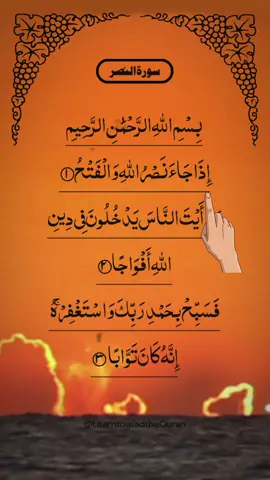 سورة النصر
بِسْمِ اللهِ الرَّحْمٰنِ الرَّحِيْمِ
إِذَا جَاءَ نَصْرُ اللهِ وَالْفَتْحُ ۝١
أَيْتَ النَّاسَ يَدْخُلُونَ فِي دِينِ
اللهِ أَفْوَاجًا ۝٢
فَسَبِّحْ بِحَمْدِ رَبِّكَ وَاسْتَغْفِرْهُ ۚ
إِنَّهُ كَانَ تَوَّابًا ۝٣
@LearntoreadtheQuran